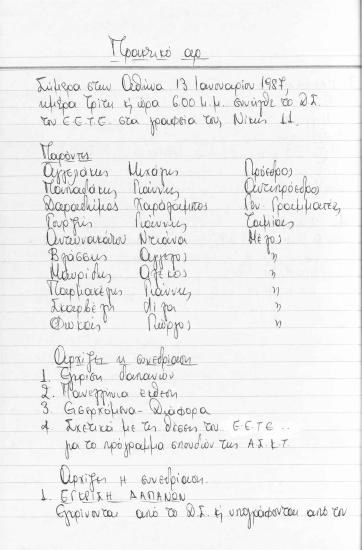 Πρακτικό αρ
Σήμερα στην Αθήνα 13 Ιανουαρίου 1987,
ημέρα Τρίτη κ ώρα 6.00 μ.μ. συνήλθε το Δ.Σ.
του Ε.Ε.Τ.Ε. στα γραφεία του, Νίκης 11.
Παρόντες
Αγγελάκης Μιχάλης Πρόεδρος
Παπαδάκης Γιάννης Αντιπρόεδρος
Χαράλαμπος Γεν Γραμματέας
Γουρζής Γιάννης Ταμίας
Αντωνακάτου Ντιάνα Μέλος
Βλάσσης Άγγελος "
Μαυρίδης Αλέκος "
Γιάννης "
Λίζα "
Φωκάς Γιώργος "
Αρχίζει η συνεδρίαση
1. Έγκριση δαπανών
2. Πανελλήνια έκθεση
3. Εισερχόμενα - Διάφορα
4 Σχετικά με τις θέσεις του Ε.Ε.Τ.Ε..
για το πρόγραμμα σπουδών της Α.Σ.Κ.Τ.
Αρχίζει η συνεδρίαση.
1. ΕΓΚΡΙΣΗ ΔΑΠΑΝΩΝ
Εγκρίνονται από το Δ.Σ. κ υπογράφονται από τον